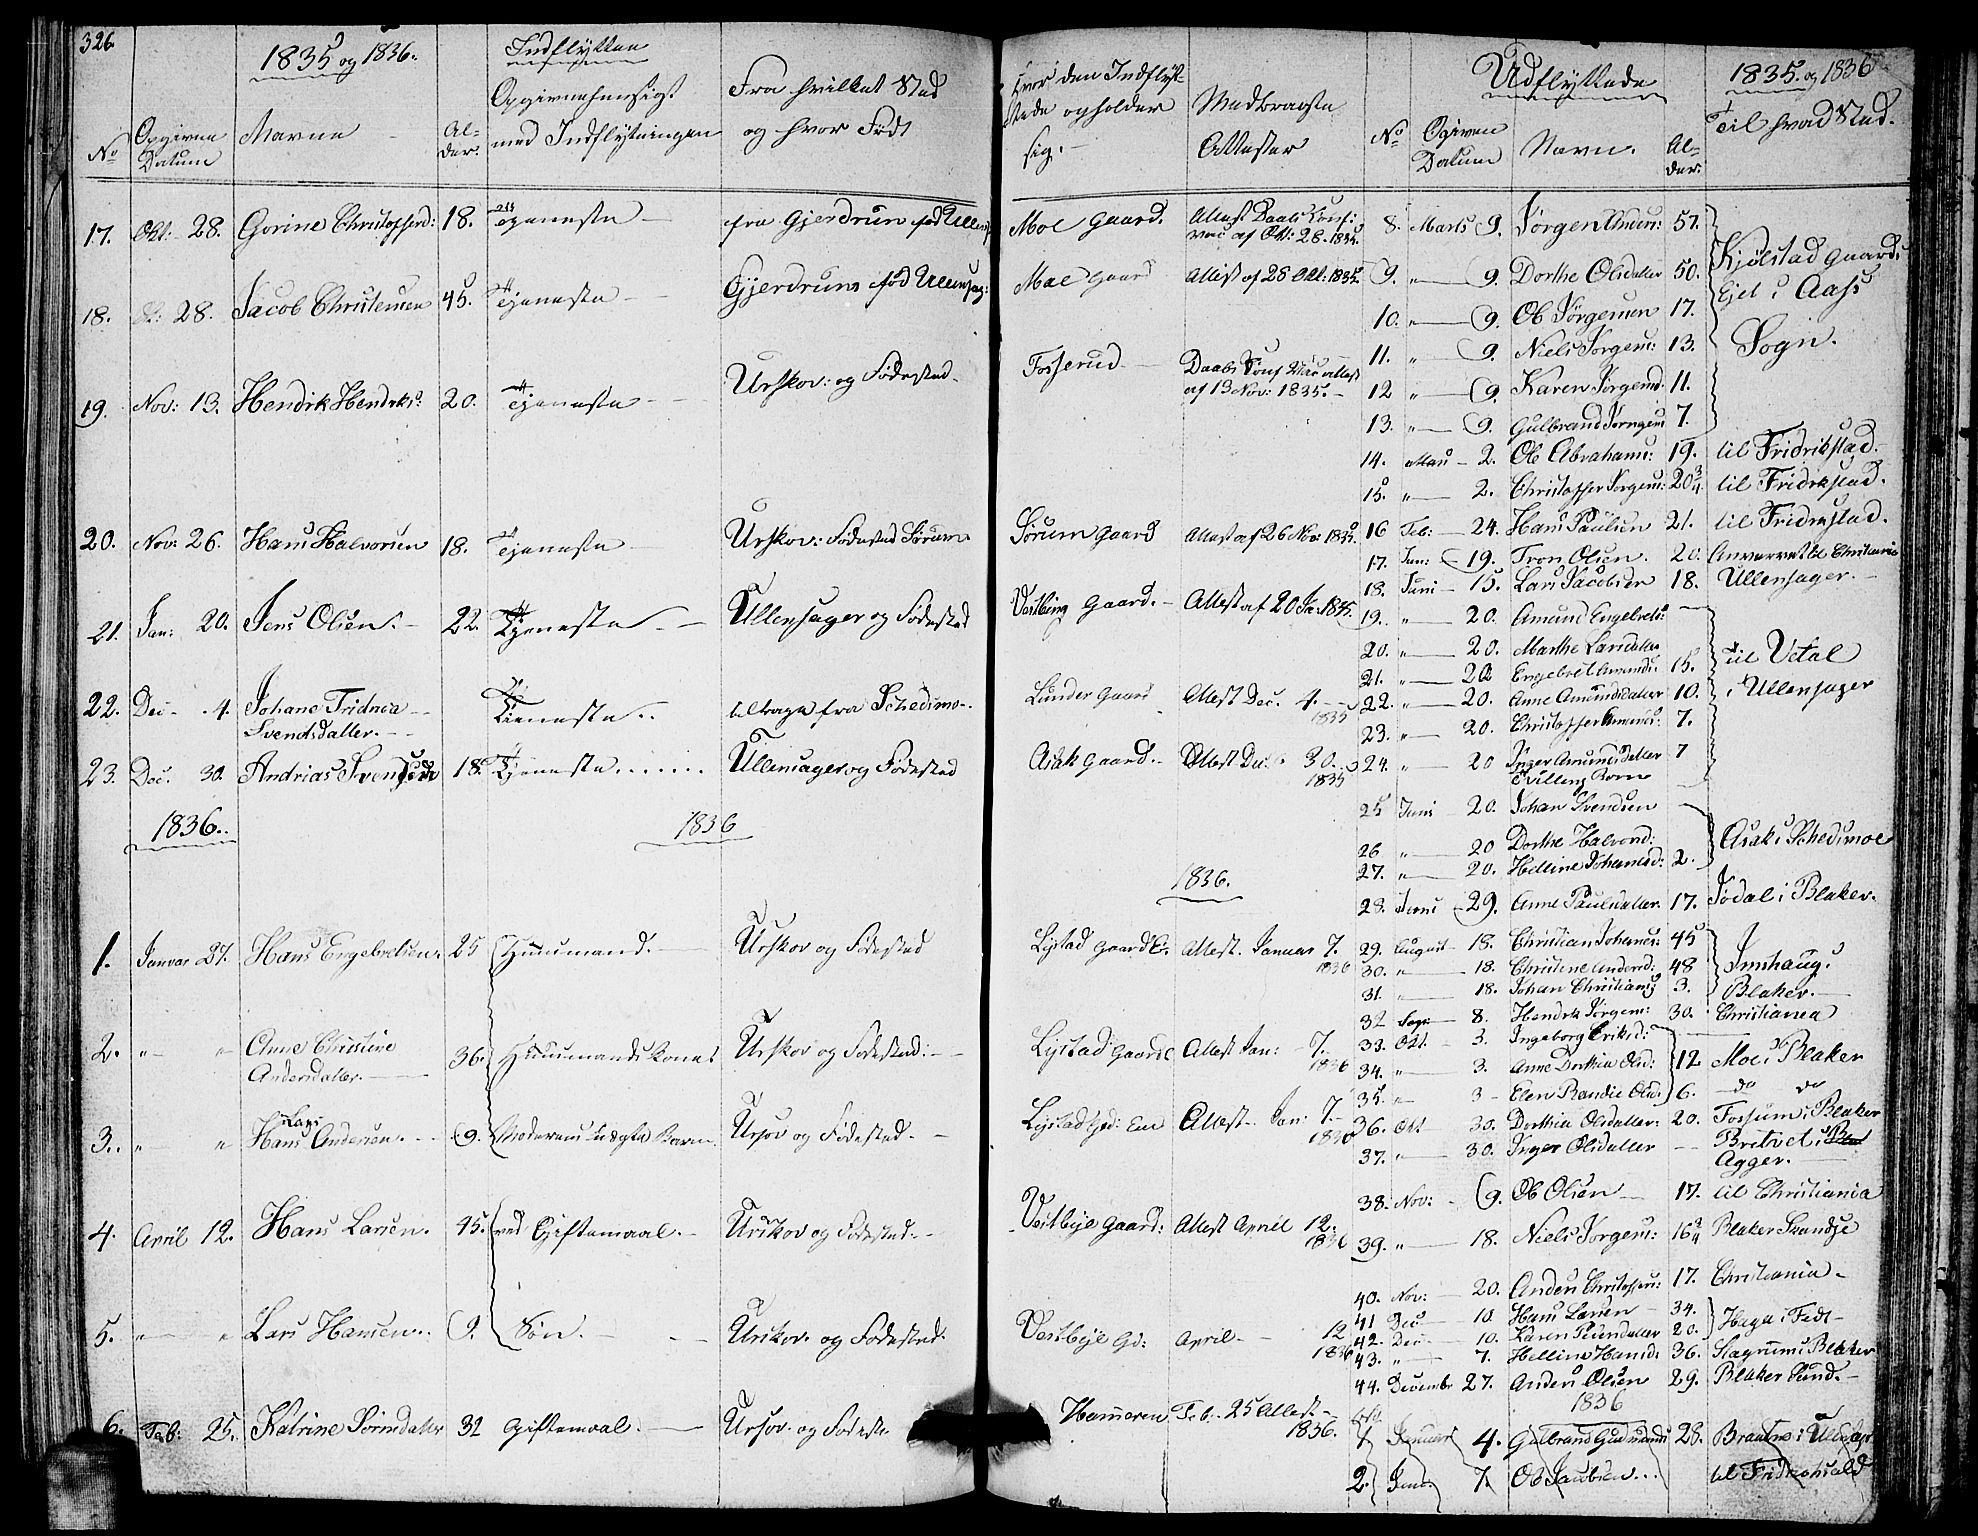 326.
1835 og 1836.
Indflyttede
No
Opgiven Datum
Navne
Alder.
Opgivne hensigt med Indflytningen
Fra hvilket Sted og hvor Født
Hvor den Indflyttede opholder sig.
Medbragte Attester
17. Okt. 28. Gorine Christopherd: 18. Tjeneste fra Gjerdrum fød Ullens Moe Gaard. Attest Daab Conf: vac af Okt: 28. 1835.
18. Okt: 28. Jacob Christensen 45. Tjeneste Gjerdrum fød Ullensag: Moe Gaard Attest af 28 Okt: 1835.
19. Nov: 13. Hendrik Hendriks: 20. Tjeneste Urskov: og Fødested. Fosserud Daabs Conf Vac attest af 13 Nov: 1835.
20. Nov: 26. Hans Halvorsen 18. Tjeneste Urskov: Fødested Sørum Sørum Gaard Attest af 26 Nov: 1835.
21. Jan: 20. Jens Olsen. 22. Tjeneste Ullensager og Fødested Vestbye Gaard. Attest af 20 Jan: 1835.
22. Dec. 4. Johane Fridrica
Svendsdatter. Tjeneste tilbage fra Schedsmo. Lunder Gaard Attest Dec. 4. 1835
23. Dec. 30. Andrias Svendsen 18. Tjeneste Ullensager og Fødested Asak Gaard. Attest Dec. 30. 1835
1836. 1836 1836.
1. Januar 27. Hans Engebretsen. 25 Huusmand. Urskov og Fødested Lystad Gaard Attest. Januar 7. 1836
2. " " Anne Christine
Andersdatter. 36. Huusmands kone Urskov og Fødested. Lystad Gaard Attest Jan: 7. 1836
3. " " Lars
Hans Andersen. 9. Moderens uægte Barn. Urskov og Fødested. Lystad Gd: Attest Jan: 7 1836
4. April 12. Hans Larsen. 45. ved Giftemaal. Urskov og Fødested. Vestbye Gaard: Attest April 12. 1836
5. " " Lars Hansen. 9. Søn. Urskov og Fødested. Vestbye Gd: April 12 1836
6. Feb: 25. Katrine Sørensdatter 32 Giftemaal. Urskov og Fødested Hammeren Feb: 25 Attest 1836.
Udflyttede
1835. og 1836
No
Opgiven Datum
Navn.
Alder.
Til hvad Sted.
8. Marts 9. Jørgen Anders: 57.
9. " 9. Dorthe Olsdatter 50. Kjølstad Gaard,
10. " 9. Ole Jørgensen 17. Ejet i Aass
11. " 9. Niels Jørgens: 13. Sogn.
12 " 9. Karen Jørgensd: 11.
13. " 9. Gulbrand Jørngens 7.
14. Mai 2. Ole Abrahams: 19. til Fridrikstad.
15. " 2. Christopher Jørgens: 20¾ til Fridrkstad.
16 Feb: 24. Hans Paulsen 21. til Fridrikstad.
17. Jun: 19. Tron Olsen. 20. Anvervet til Christiania
18. Juni 15. Lars Jacobsen 18. Ullensager.
19. " 20. Amund Engebrets:
20. " 20. Marthe Larsdatter til Vetal
21. " 20 Engebret Amunds: 15. i Ullensager
22. " 20. Anne Amundsdatter 10.
23. " 20. Christopher Amunds: 7.
24. " 20 Inger Amundsdatter 7
Tvilling Børn
25 Juni 20. Johan Svendsen
26 " 20 Dorthe Halvorsd: Asak i Schedsmoe
27. " 20. Helline Johannesd: 2.
28. Juni 29. Anne Paulsdatter. 17. Jødal i Blaker.
29. August 18. Christian Johannes: 45
30. " 18. Christine Andersd: 48 Imshaug i
31. " 18. Johan Christians 3. Blaker.
32 Sept: 8. Hendrk Jørgens: 30. Christiania
33. Okt. 3. Ingeborg Eriksd:
34. " 3. Anne Dorthia Olsd: 12 Moe i Blaker
35. " 3 Elen Randie Olsd. 6. do do
36. Okt 30. Dorthia Olsdatter: 20. Fossum i Blaker
37. " 30. Inger Olsdatter Bretvet i
Agger.
38. Nov: 9. Ole Olsen 17. til Christiania
39. " 18. Niels Jørgens: 16¾ Blaker Skandse
40. Nov: 20. Anders Christophers: 17. Christiania
41 Dec 10 Hans Larsen 34.
42. Dec 10. Karen Pedersdatter 20. Haga i Fedt
43. " 7. Helline Hansd: 36. i Blaker
44. Decembr 27. Anders Olsen 29. Blaker Sund.
1836
1 Januar 4. Gulbrand Gudmunds 28. i Ullensager
2. Janu. 7. Ole til Fridrichshald